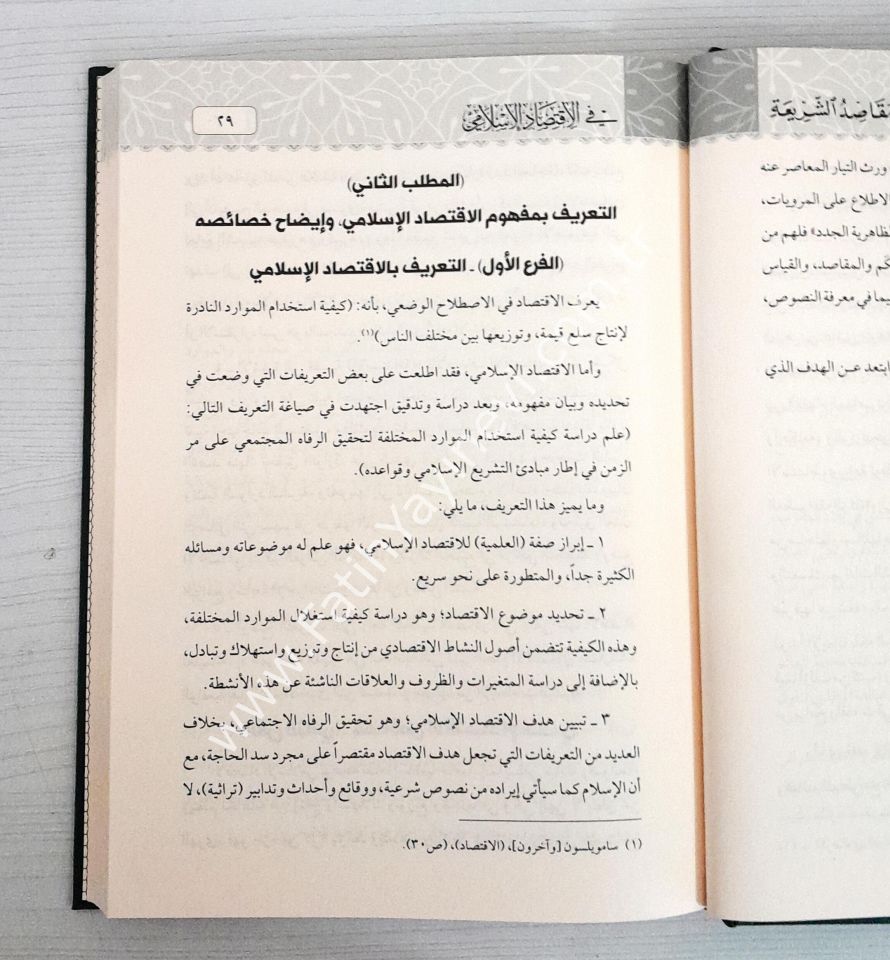 مقاصد الشريعة
ورث التيار المعاصر عنه
الاطلاع على المرويات،
لظاهرية الجدد» فلهم من
والمقاصد، والقياس
فيما في معرفة النصوص،
ابتعد عن الهدف الذي
في الاقتصاد الإسلامي
٢٩
(المطلب الثاني)
التعريف بمفهوم الاقتصاد الإسلامي، وإيضاح خصائصه
(الفرع الأول) ـ التعريف بالاقتصاد الإسلامي
يعرف الاقتصاد في الاصطلاح الوضعي، بأنه: (كيفية استخدام الموارد النادرة
لإنتاج سلع قيمة، وتوزيعها بين مختلف الناس)(١).
وأما الاقتصاد الإسلامي، فقد اطلعت على بعض التعريفات التي وضعت في
تحديده وبيان مفهومه، وبعد دراسة وتدقيق اجتهدت في صياغة التعريف التالي:
(علم دراسة كيفية استخدام الموارد المختلفة لتحقيق الرفاه المجتمعي على مر
الزمن في إطار مبادئ التشريع الإسلامي وقواعده).
وما يميز هذا التعريف، ما يلي:
١ ـ إبراز صفة (العلمية) للاقتصاد الإسلامي، فهو علم له موضوعاته ومسائله
الكثيرة جداً، والمتطورة على نحو سريع.
٢ ـ تحديد موضوع الاقتصاد؛ وهو دراسة كيفية استغلال الموارد المختلفة،
وهذه الكيفية تتضمن أصول النشاط الاقتصادي من إنتاج وتوزيع واستهلاك وتبادل،
بالإضافة إلى دراسة المتغيرات والظروف والعلاقات الناشئة عن هذه الأنشطة.
٣ ـ تبيين هدف الاقتصاد الإسلامي؛ وهو تحقيق الرفاه الاجتماعي، بخلاف
العديد من التعريفات التي تجعل هدف الاقتصاد مقتصراً على مجرد سد الحاجة، مع
أن الإسلام كما سيأتي إيراده من نصوص شرعية، ووقائع وأحداث وتدابير (تراثية)، لا
(١) سامويلسون [وآخرون]، (الاقتصاد)، (ص٣٠).
www.fatihyayinevi.com.tr